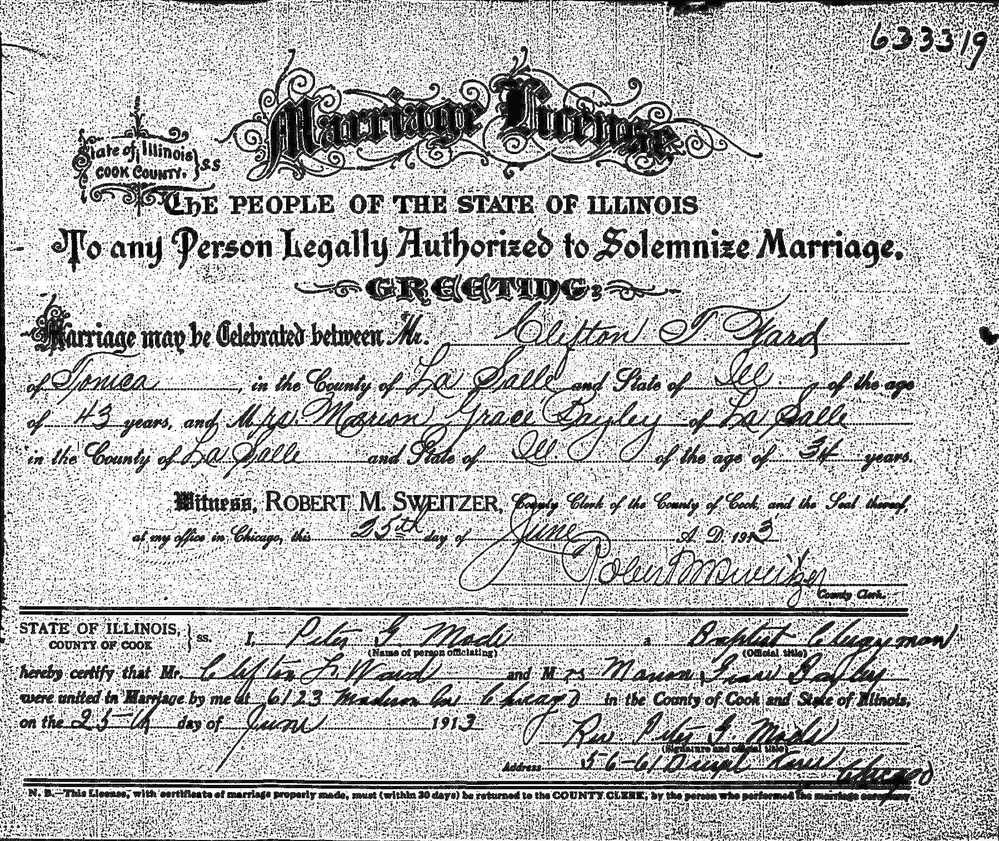 633319
Marriage License
State of Illinois
COOK COUNTY. } S.S
The PEOPLE OF THE STATE OF ILLINOIS
To any Person Legally Authorized to Solemnize Marriage,
GREETING:
Marriage may be Celebrated between Mr. Clifton T. Ward
of Tonica, in the County of La Salle and State of Ill. of the age
of 43 years, and Mrs. Marion Grace Bayley of La Salle
in the County of La Salle and State of Ill of the age of 34 years.
Witness, ROBERT M. SWEITZER, County Clerk of the County of Cook, and the Seal thereof,
at my office in Chicago, this 25th day of June A. D. 1913
Robert M Sweitzer
County Clerk.
STATE OF ILLINOIS,
COUNTY OF COOK } ss. I, Peter G. Mode a Baptist Clergyman
(Name of person officiating) (Official title)
hereby certify that Mr. Clifton T. Ward and Mrs Marion Grace Bayley
were united in Marriage by me at 6123 Madison Av Chicago in the County of Cook and State of Illinois,
on the 25th day of June 1913
Rev Peter G. Mode
(Signature and official title)
Address 56-61 Chicago
N. B.—This License, with certificate of marriage properly made, must (within 30 days) be returned to the COUNTY CLERK, by the person who performed the marriage ceremony.